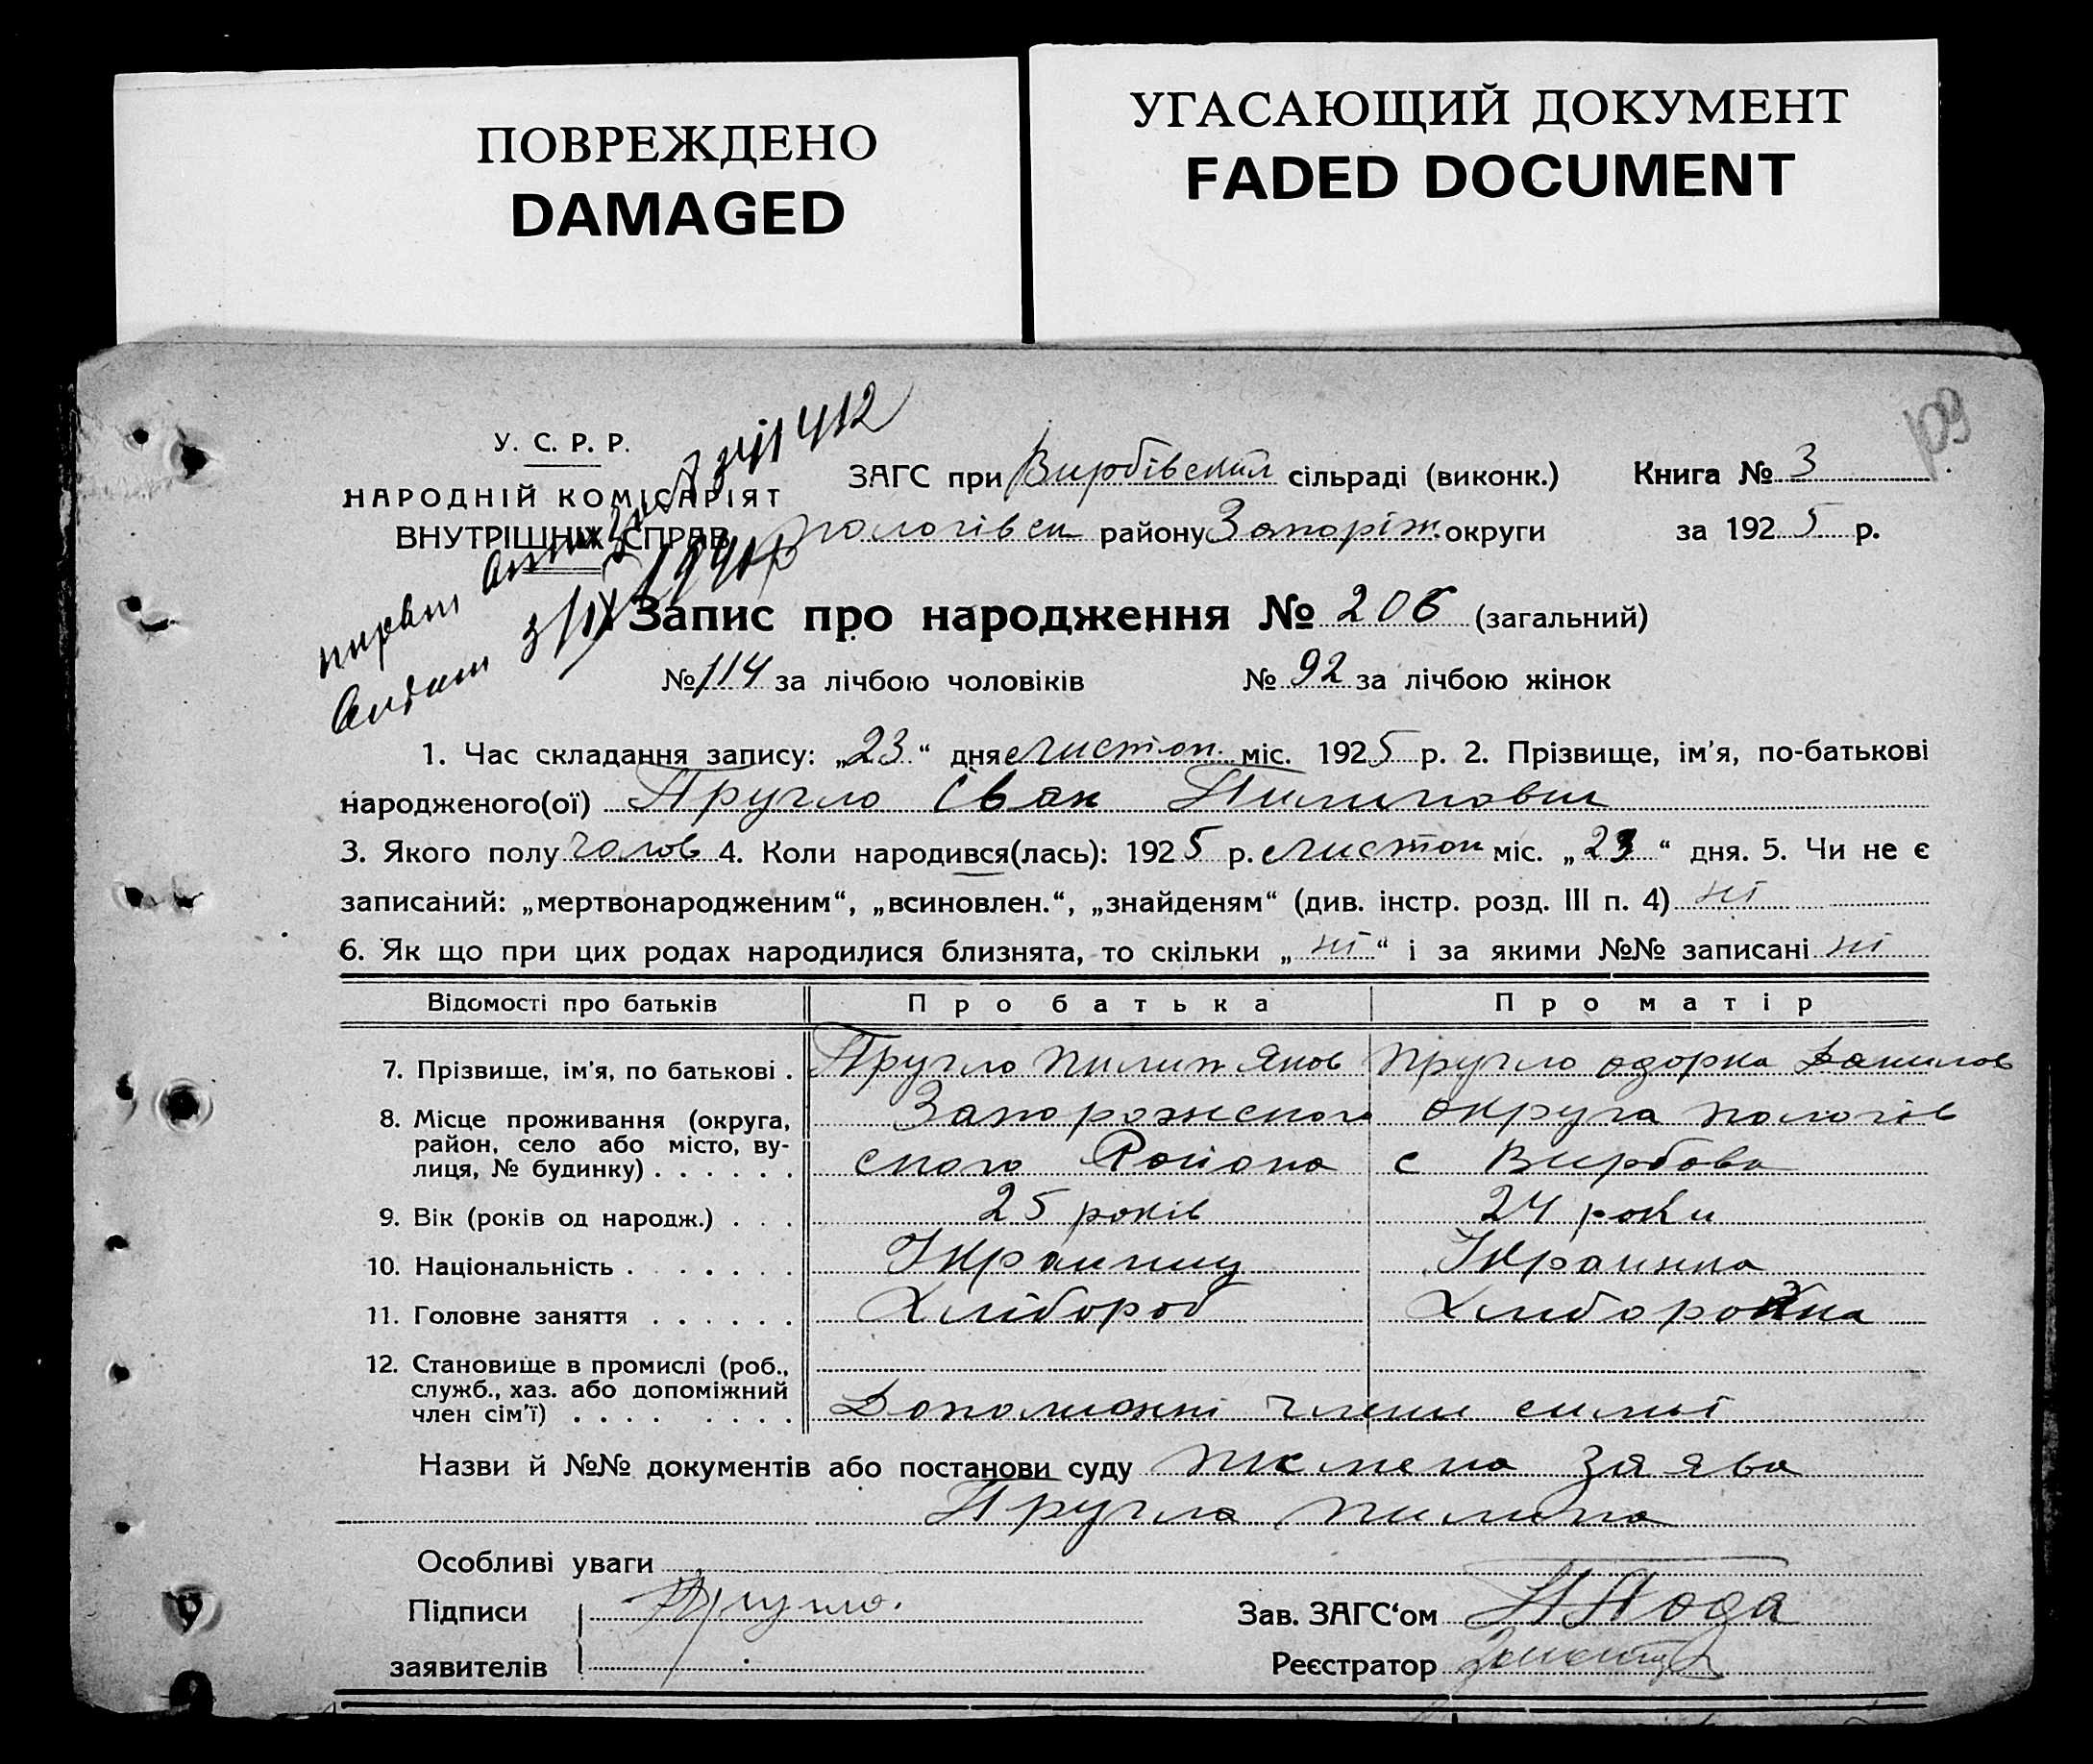 ПОВРЕЖДЕНО
DAMAGED
УГАСАЮЩИЙ ДОКУМЕНТ
FADED DOCUMENT
109
У. С. Р. Р.
НАРОДНІЙ КОМІСАРІЯТ
ВНУТРІШНІХ СПРАВ
412
1941 р
ЗАГС при Вирбівский сільраді (виконк.) Книга № 3
пологівск району Запоріж. округи за 192 5 р.
Запис про народження № 206 (загальний)
№ 114 за лічбою чоловіків № 92 за лічбою жінок
1. Час складання запису: „23“ дня листоп. міс. 1925 р. 2. Прізвище, ім'я, по-батькові
народженого(ої) Пругло Іван Пилипович
3. Якого полу чолов 4. Коли народився(лась): 1925 р. листоп міс. „23“ дня. 5. Чи не є
записаний: „мертвонародженим“, „всиновлен.“, „знайденям“ (див. інстр. розд. III п. 4) ні
6. Як що при цих родах народилися близнята, то скільки „ні“ і за якими №№ записані ні
Відомості про батьків Про батька Про матір
7. Прізвище, ім'я, по батькові . Пругло Пилип Яков Пругло Одорка Данилов
8. Місце проживання (округа, Запорожского округа пологів
район, село або місто, ву-
лиця, № будинку) . . . . . . ского Района с Вирбова
9. Вік (років од народж.) . . . 25 років 24 роки
10. Національність . . . . . . . Украинец Украинка
11. Головне заняття . . . . . . Хлібороб Хлиборобка
12. Становище в промислі (роб.,
служб., хаз. або допоміжний
член сім'ї) . . . . . . . . Допоможні члени симьі
Назви й №№ документів або постанови суду писмена заява
Пругла Пилипа
Особливі уваги
Підписи Пругло. Зав. ЗАГС‘ом
заявителів Реєстратор